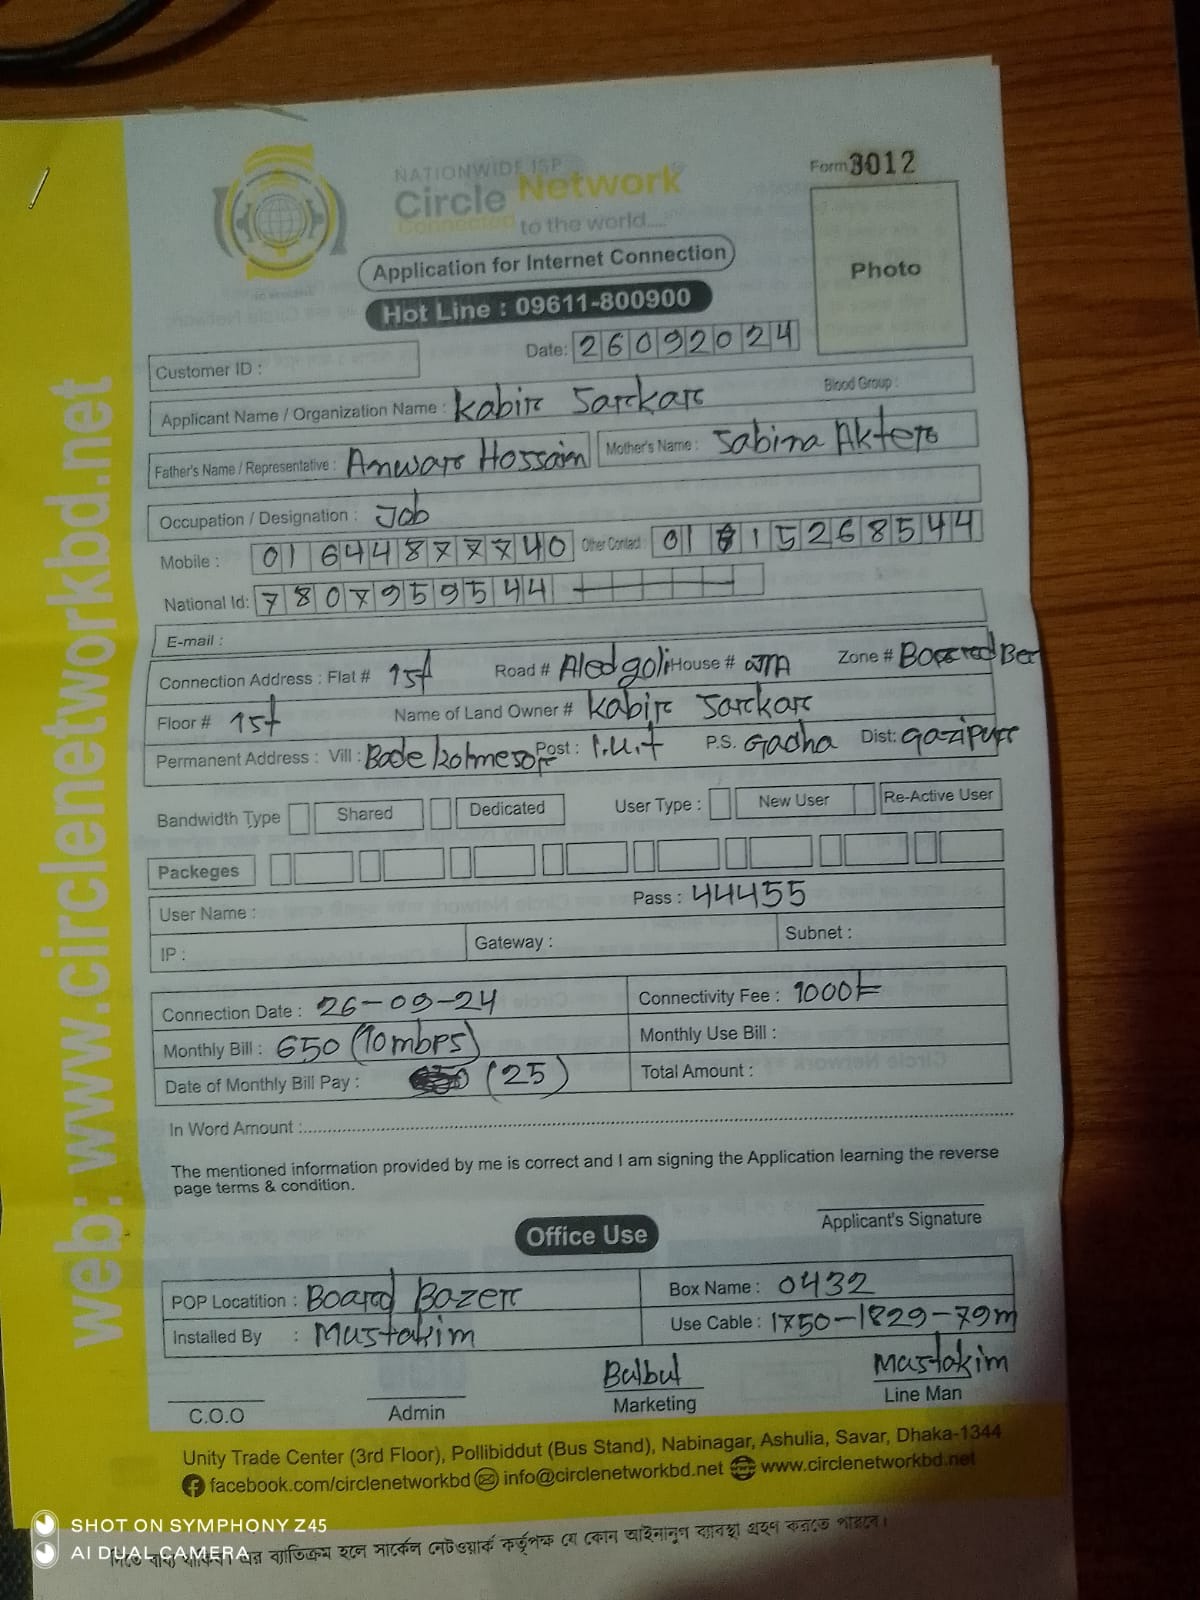 NATIONWIDE ISP
Circle Network
Connected to the world....
Form 3012
Photo
Application for Internet Connection
Hot Line : 09611-800900
Date: 26092024
Customer ID :
Applicant Name / Organization Name : Kabir Sarkar Blood Group :
Father's Name / Representative : Anwar Hossain Mother's Name : Sabina Akter
Occupation / Designation : Job
Mobile : 01644877740 Other Contact 01815268544
National Id: 7807959544
E-mail :
Connection Address : Flat # 1st Road # Aledgoli House # Zone #
Floor # 1st Name of Land Owner # Kabir Sarkar
Permanent Address : Vill : Post : I.U.T P.S. Gacha Dist: Gazipur
Bandwidth Type Shared Dedicated User Type : New User Re-Active User
Packeges
User Name : Pass : 44455
IP : Gateway : Subnet :
Connection Date : 26-09-24 Connectivity Fee : 1000/=
Monthly Bill : 650 (10mbps) Monthly Use Bill :
Date of Monthly Bill Pay : (25) Total Amount :
In Word Amount :
The mentioned information provided by me is correct and I am signing the Application learning the reverse
page terms & condition.
Applicant's Signature
Office Use
POP Locatition : Board Bazer Box Name : 0432
Installed By : Mustakim Use Cable : 1750-1829-79m
C.O.O Admin Bulbul Marketing Mastakim Line Man
Unity Trade Center (3rd Floor), Pollibiddut (Bus Stand), Nabinagar, Ashulia, Savar, Dhaka-1344
facebook.com/circlenetworkbd info@circlenetworkbd.net www.circlenetworkbd.net
web: www.circlenetworkbd.net
ব্যাতিক্রম হলে সার্কেল নেটওয়ার্ক কর্তৃপক্ষ যে কোন আইনানুগ ব্যাবস্থা গ্রহণ করতে পারবে।
SHOT ON SYMPHONY Z45
AI DUAL CAMERA